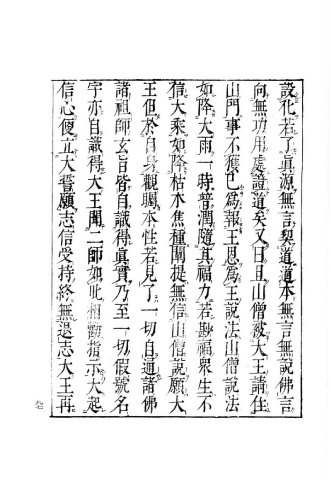 設化若了眞源無言契道道本無言無說佛言
向無功用處證道矣又曰且山僧被大王請住
山門事不獲已爲報王恩爲王說法山僧說法
如降大雨一時普潤隨其福力若尠福衆生不
信大乘如降枯木焦種闡提無信山僧說願大
王但於自身觀矚本性若見了一切自通諸佛
諸祖師玄旨皆自識得眞實乃至一切假號名
字亦自識得大王聞二師如此相顯指示大起
信心便立大誓願志信受持終無退志大王再